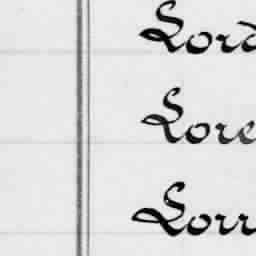 Lord
Lore
Lorr